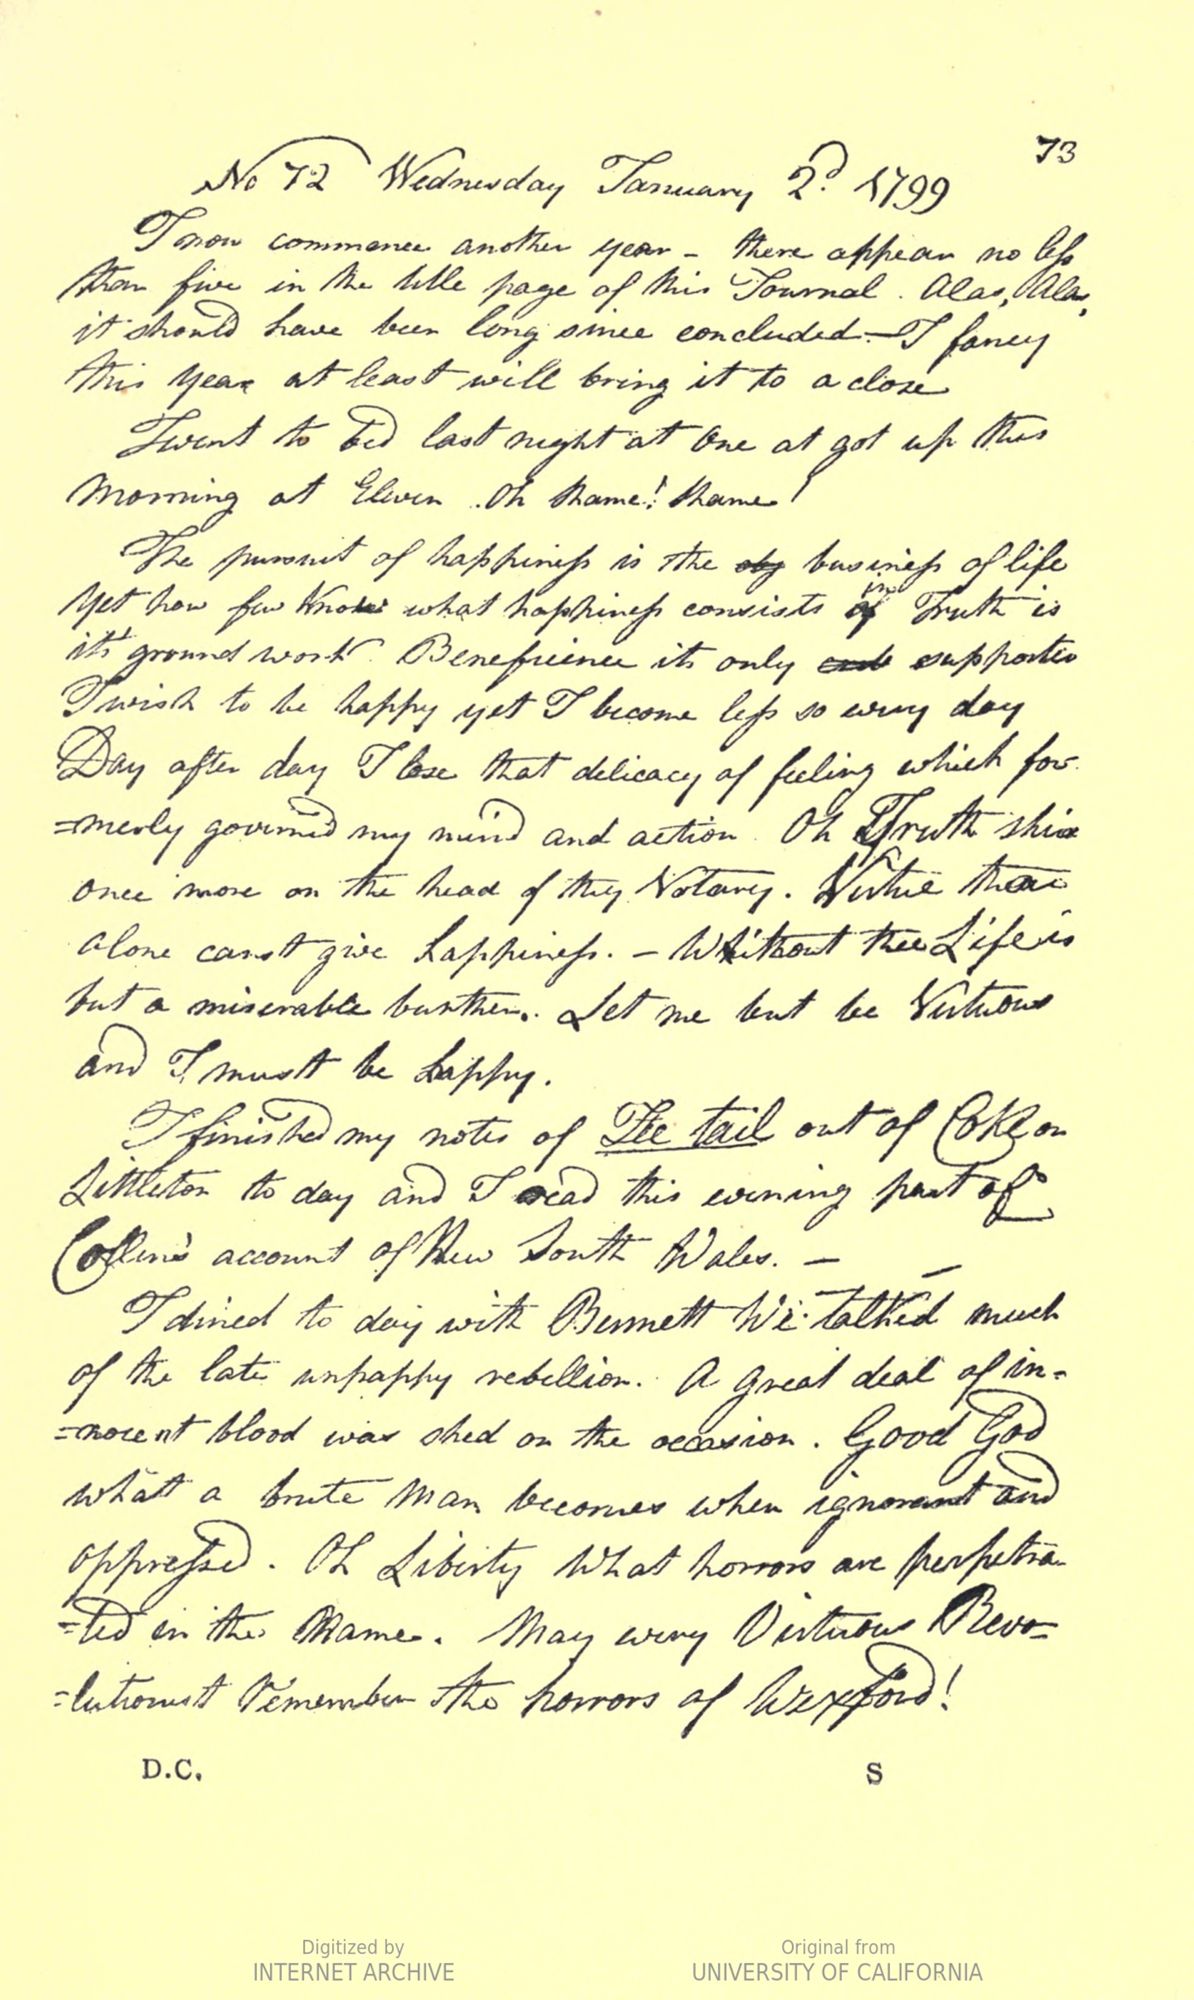 73
No 72 Wednesday January 2d. 1799
I now commence another year - there appear no less
than five in the title page of this Journal. Alas, Alas,
it should have been long since concluded. — I fancy
this year at least will bring it to a close
I went to bed last night at One at got up this
Morning at Eleven. Oh shame! shame!
The pursuit of happiness is the obj business of life
Yet how few Know what happiness consists of in Truth is
it's ground work. Beneficience its only supporter
I wish to be happy yet I become less so every day
Day after day I lose that delicacy of feeling which for
=merly governed my mind and action. Oh Truth shine
once more on the head of thy Votary. Virtue thou
alone canst give happiness. - Whithout thee Life is
but a miserable burthen. Let me but be Virtuous
and I must be happy.
I finished my notes of Fee tail out of Coke on
Littleton to day and I read this evening part of
Collins's account of New South Wales. — —
I dined to day with Bennett We talked much
of the late unhappy rebellion. A great deal of in=
=nocent blood was shed on the occasion. Good God
what a brute Man becomes when ignorant and
oppressed. Oh Liberty What horrors are perpetra
=ted in the Name. May every Virtuous Revo=
=lutionist Remember the horrors of Wexford!
D.C. S
Digitized by Original from
INTERNET ARCHIVE UNIVERSITY OF CALIFORNIA